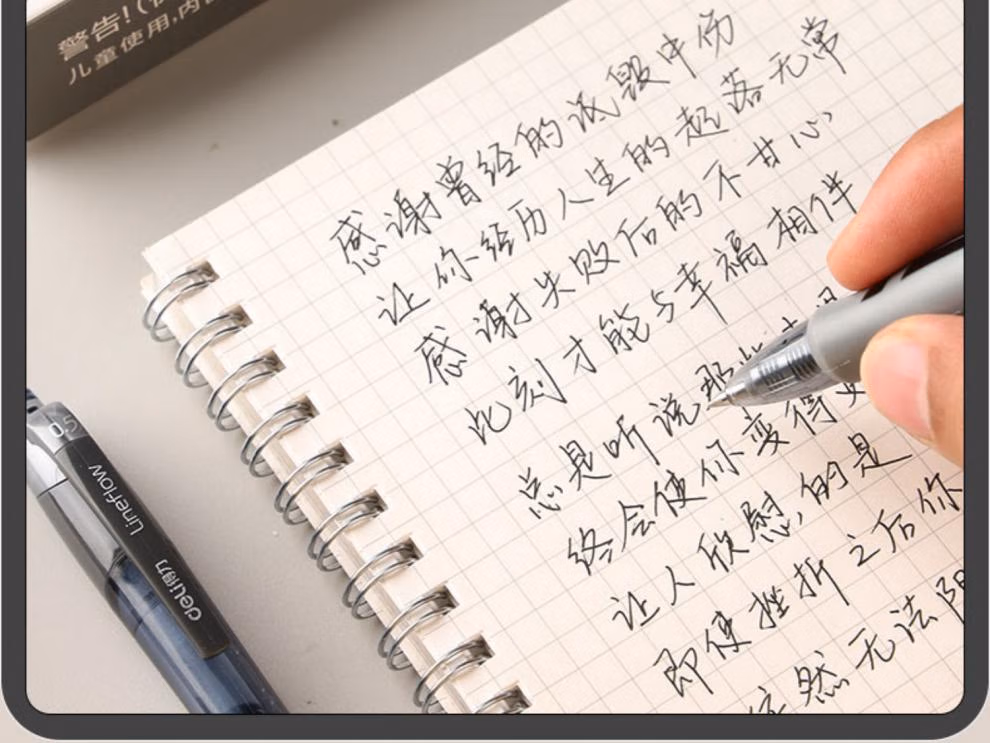 警告!(
儿童使用,内
感谢曾经的诋毁中伤
让你经历人生的起落无常
感谢失败后的不甘心
此刻才能与幸福相伴
总是听说那些
终会使你变得
让人欣慰的是
即使挫折之后你
依然无法
0.5
Lineflow
deli得力